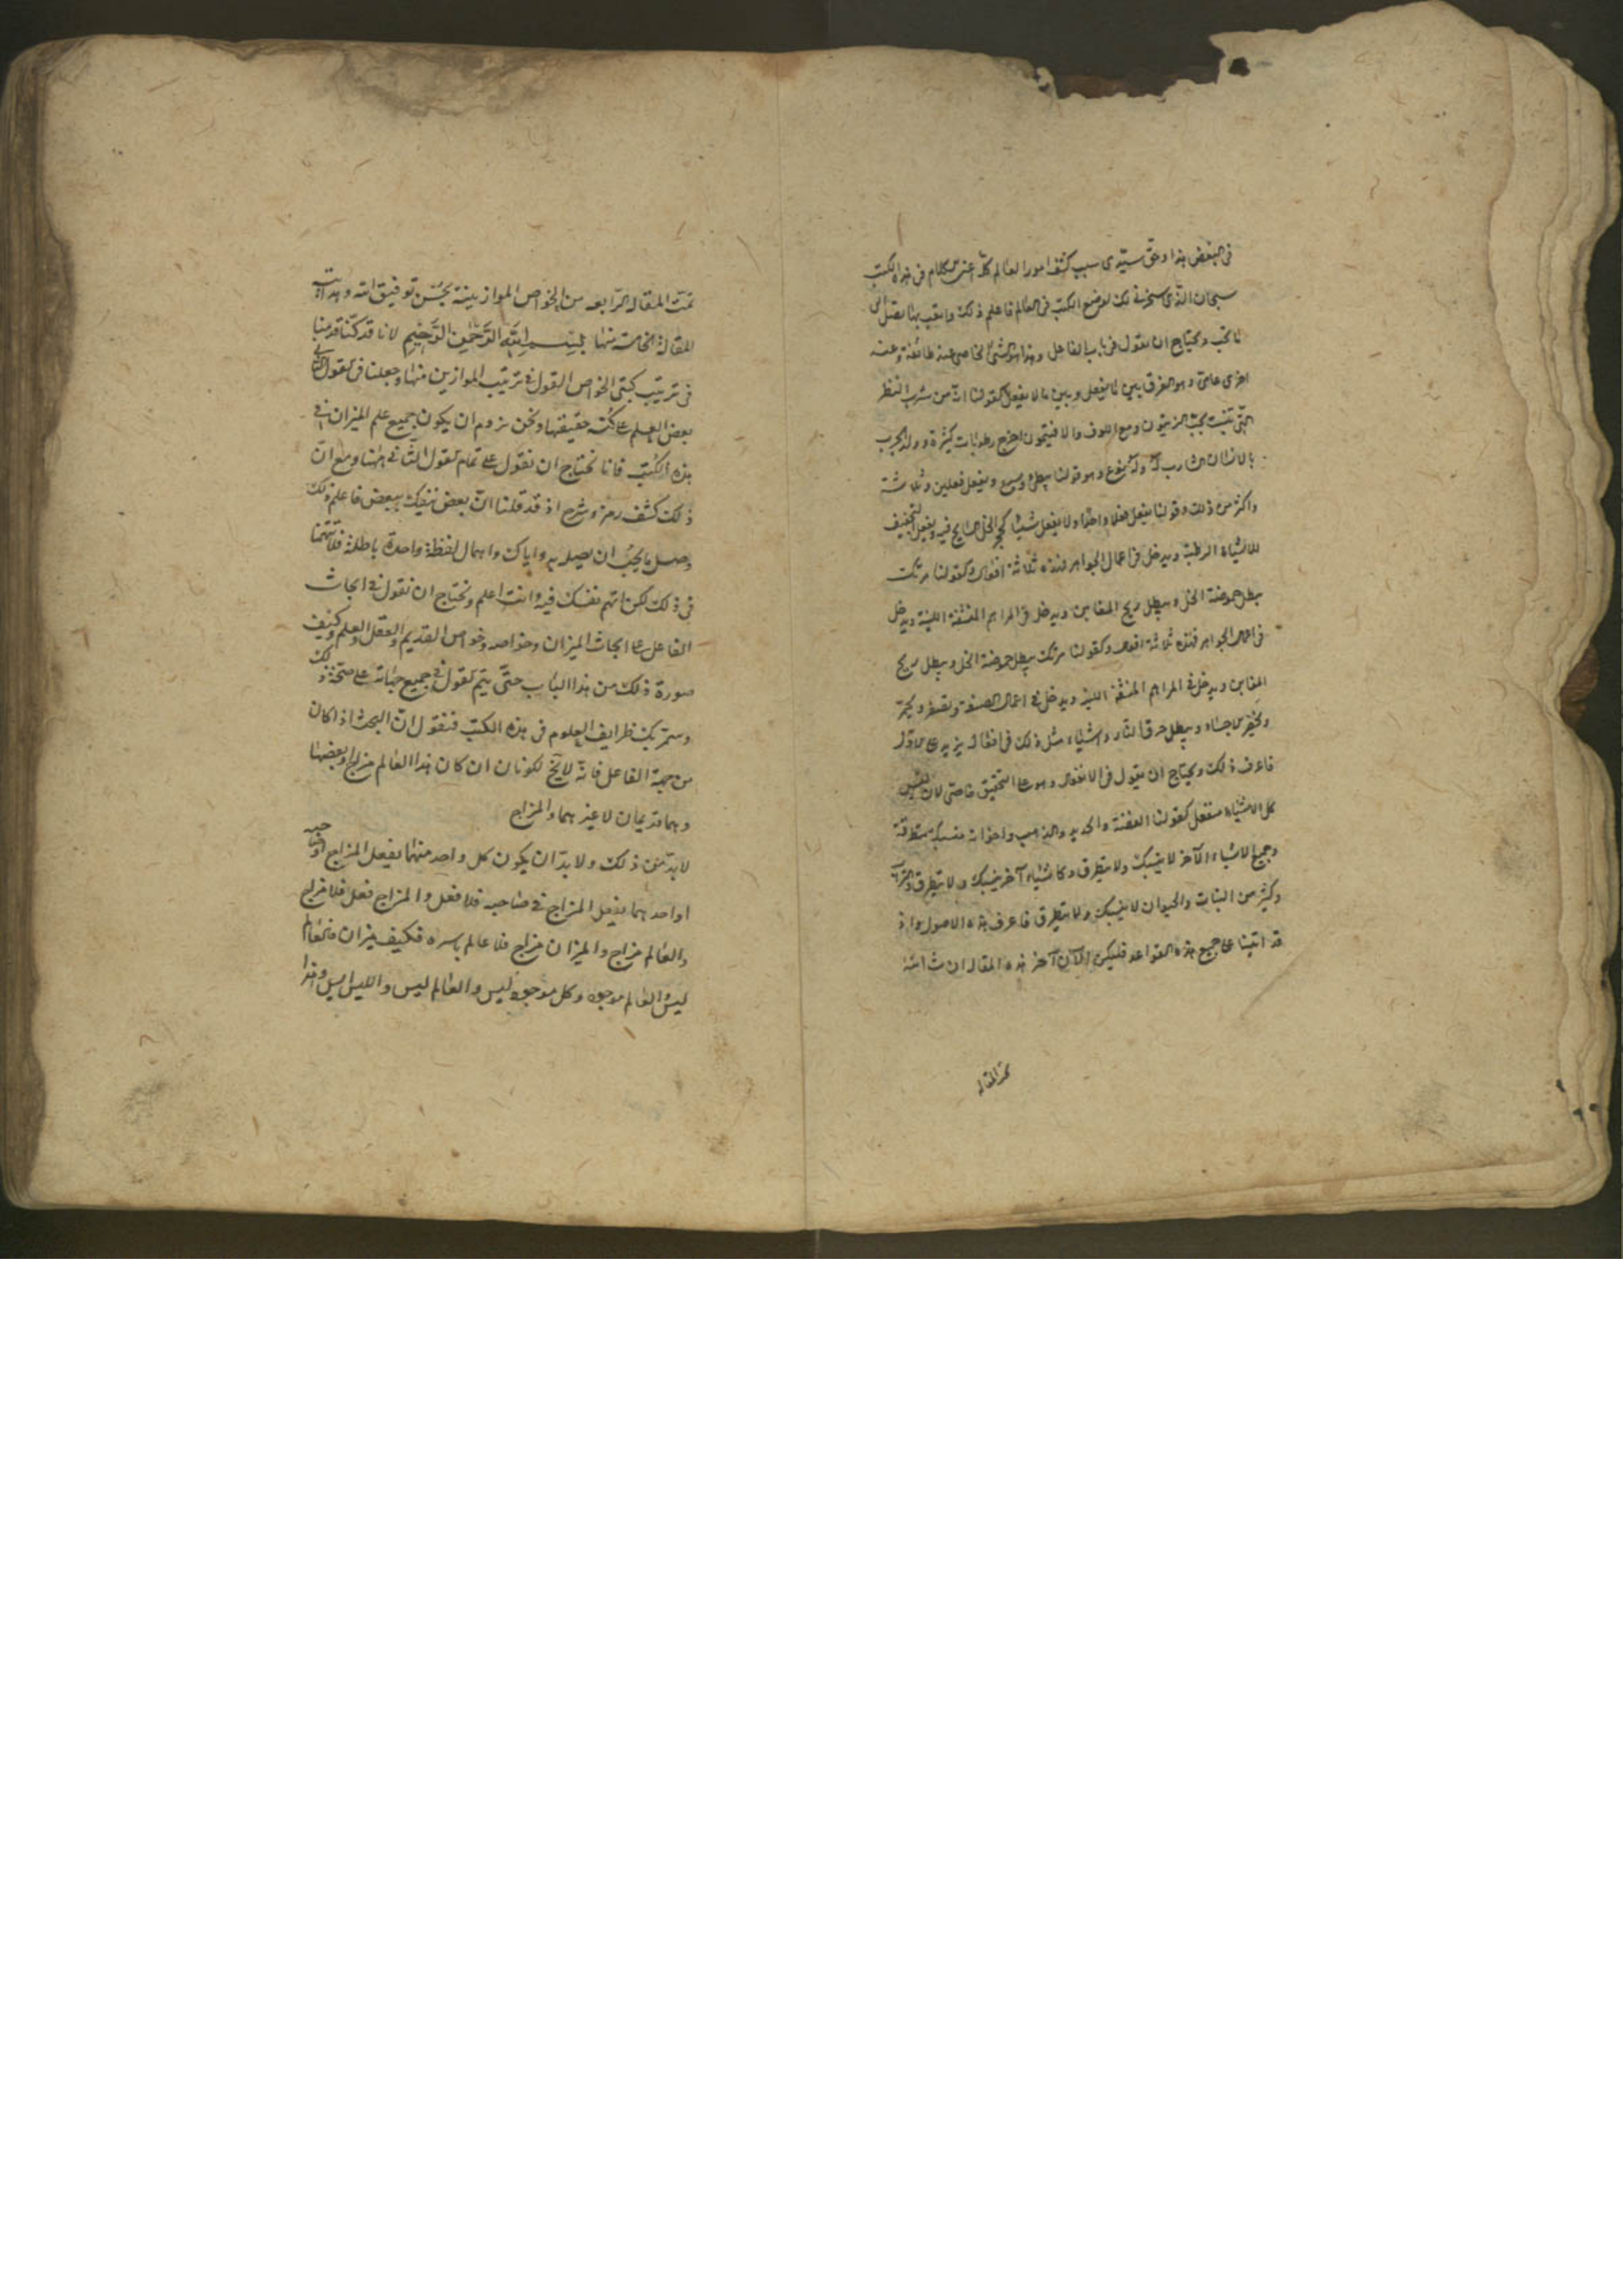 في البعض هذا وحق سيدى سبب كشف امور العالم كله اعنى الكلام في هذه الكتب
سبحان الذى سخرنى لك لوضع الكتب في العالم فاعلم ذلك واتعب بها تصل الى
ما تحب ونحتاج ان نقول في باب الفاعل وهذا هو الشئ الخاص عند طائفة وعند
اخرى عامى وهو الفرق بين ما يفعل وبين ما لا يفعل كقولنا ان من شرب
التى تنبت تحت الزيتون ومع اخرج رطوبات كثيرة
بالانسان الشارب له وهو قولنا ويفعل فعلين وثلاثة
واكثر من ذلك وقولنا يفعل فعلا واحدا ولا يفعل شيئا فيه ويفعل التجفيف
للاشياء الرطبة ويدخل في اعمال الجواهر فهذه ثلاثة افعال وكقولنا مرتك
يبطل حموضة الخل ويبطل ريح المغابن ويدخل في المراهم المنشفة اللينة ويدخل
في اعمال الجواهر فهذه ثلاثة افعال وكقولنا مرتك يبطل حموضة الخل ويبطل ريح
المغابن ويدخل في المراهم المنشفة اللينة ويدخل في اعمال الصنعة ويصفر ويحمر
ويبطل حرق النار واشياء مثل ذلك في افعاله يزيد على الاول
فاعرف ذلك ويحتاج ان يقول في الانفعال وهو على التحقيق خاصى لان ليس
كل الاشياء منفعل كقولنا الفضة والحديد والذهب واخواته منسبكة متطرقة
وجميع الاشياء الآخر لا ينسبك ولا يتطرق وكاشياء آخر ينسبك ولا يتطرق
وكثير من النبات والحيوان لا ينسبك ولا يتطرق فاعرف هذه الاصول واذ
قد اتينا على جميع هذه القواعد فليكن الآن آخر هذه المقاله ان شاء الله
تمت المقاله
تمت المقاله الرابعه من الخواص الموازينية بحسن توفيق الله وهدايته
المقالة الخامسة منها بسم الله الرحمن الرحيم لانا قد كنا قدمنا
في ترتيب كتبى الخواص القول في ترتيب الموازين منها وجعلنا في القول الثانى
بعض العلم على كنه حقيقتها ونحن نروم ان يكون جميع علم الميزان في
هذه الكتب فانا نحتاج ان نقول على تمام القول الثانى ههنا ومع ان
ذلك كشف رمز وشرح اذ قد قلنا ان بعض ببعض فاعلم ذلك
وصل ما يجب ان يصله به واياك واهمال لفظة واحدة باطلة فلا تتهمنا
في ذلك لكن اتهم نفسك فيه وانت اعلم ونحتاج ان نقول في ابحاث
الفاعل على ابحاث الميزان وخواصه وخواص القديم والعقل والعلم وكيف
صورة ذلك من هذا الباب حتى يتم القول في جميع جهاته على صحة ذلك
وستمر بك ظرايف العلوم في هذه الكتب فنقول ان البحث اذا كان
من جهة الفاعل فانه لا يخ لكونان ان كان هذا العالم مزاج وبعضها
وهما قديمان لا غيرهما والمزاج
لابد من ذلك ولابد ان يكون كل واحد منهما يفعل المزاج في صاحبه
او احدهما يفعل المزاج في صاحبه فلا فعل والمزاج فعل فلا مزاج
والعالم مزاج والميزان مزاج فلا عالم باسره فكيف ميزان فالعالم
ليس والعالم موجود وكل موجود ليس والعالم ليس والليس ايس وهذا